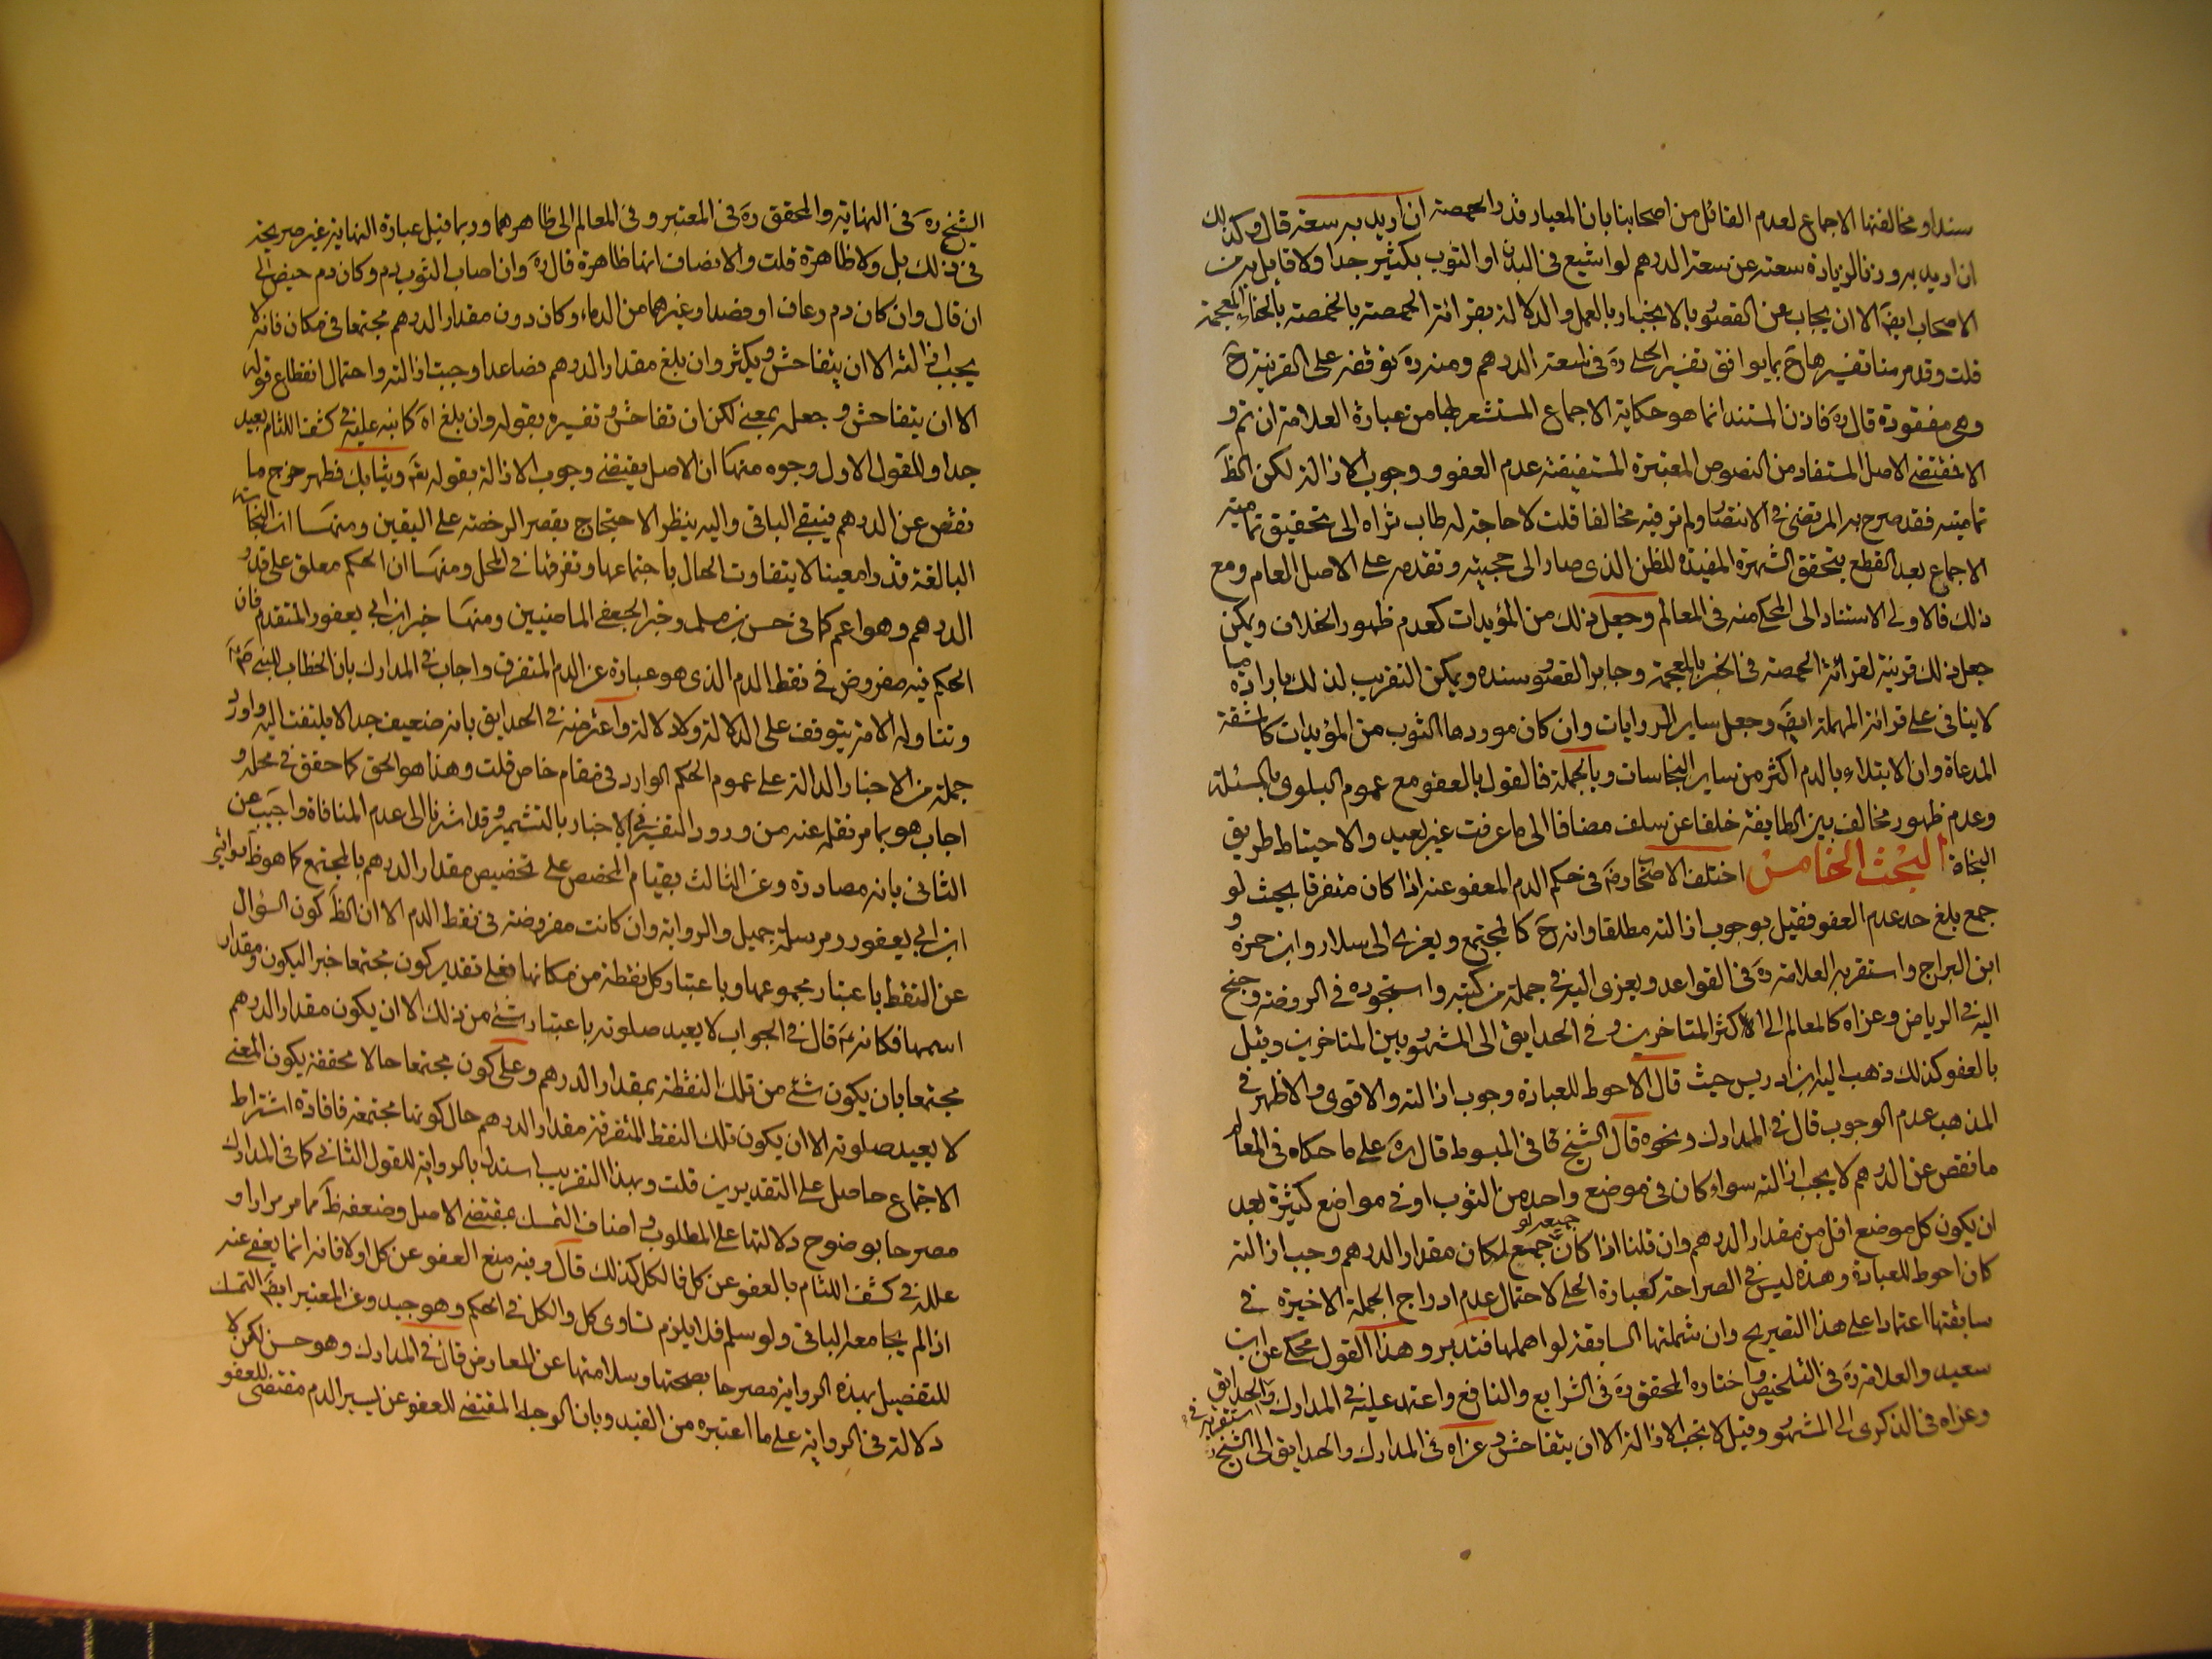 سندا و مخالفتها الاجماع لعدم القائل من اصحابنا بان المعيار قدر الحمصة ان اريد به سعته قال وكذلك
ان اريد به وزنا لزيادة سعته عن سعة الدرهم لو اشيع في البدن او الثوب بكثير جدا ولا قايل به من
الاصحاب ايضَ الا ان يجاب عن القصور بالانجبار بالعمل والدلالة بقرائة الحمصة بالخمصة بالخاء المعجمة
قلت وقد مر منا تفسيرها حَ بما يوافق تفسير الحلي ره في سعة الدرهم ومنه رهَ توقفه على القرينة حَ
وهي مفقودة قال رهَ فاذن المستند انما هو حكاية الاجماع المستشعر لها من عبارة العلامة ان تم و
الا فمقتضى الاصل المستفاد من النصوص المعتبرة المستفيضة عدم العفو و وجوب الازالة لكن الظَ
تماميته فقد صرح به المرتضى في الانتصار ولم نر فيه مخالفا قلت لا حاجة له طاب ثراه الى تحقيق تماميته
الاجماع بعد القطع بتحقق الشهرة المفيدة للظن الذي صار الى حجيته وتقدمه على الاصل العام ومع
ذلك فالاولى الاستناد الى المحكي منه في المعالم وجعل ذلك من المؤيدات كعدم ظهور الخلاف ويمكن
جعل ذلك قرينة لقرائة الحمصة في الخبر بالمعجمة وجابر القصور سنده ويمكن التقريب لذلك بارادة ما
لا ينافي على قرائة المهملة ايضَ وجعل ساير الروايات وان كان موردها الثوب من المؤيدات كالمشقة
المدعاة وان الابتلاء بالدم اكثر من ساير النجاسات وبالجملة فالقول بالعفو مع عموم البلوى بالمسئلة
وعدم ظهور مخالف بين الطايفة خلفا عن سلف مضافا الى ما عرفت غير بعيد والاحتياط طريق
النجاة البحث الخامس اختلف الاصحاب رضَ في حكم الدم المعفو عنه اذا كان متفرقا بحيث لو
جمع بلغ حد عدم العفو فقيل بوجوب ازالته مطلقا وانه حَ كالمجتمع ويعزى الى سلار وابن حمزة و
ابن البراج واستقربه العلامة رهَ في القواعد ويعزى اليه في جملة من كتبه واستجوده في الروضة وجنح
اليه في الرياض وعزاه كالمعالم الى الاكثر المتاخرين وفي الحدايق الى المشهور بين المتاخرين وقيل
بالعفو كذلك وذهب اليه ابن ادريس حيث قال الاحوط للعبادة وجوب ازالته والاقوى والاظهر في
المذهب عدم الوجوب قال في المدارك ونحوه قال الشيخ في المبسوط قال رهَ على ما حكاه في المعالم
ما نقص عن الدرهم لا يجب ازالته سواء كان في موضع واحد من الثوب او في مواضع كثيرة بعد
ان يكون كل موضع اقل من مقدار الدرهم وان قلنا اذا كان جميعه لو جمع لكان مقدار الدرهم وجب ازالته
كان احوط للعبادة وهذه ليس في الصراحة كعبارة الحلي لاحتمال عدم ادراج الجملة الاخيرة في
سابقتها اعتمادا على هذا التصريح وان شملتها السابقة لو اهملها فتدبر وهذا القول محكي عن ابن
سعيد والعلامة رهَ في التلخيص واختاره المحقق رهَ في الشرايع والنافع واعتمد عليه في المدارك والحدايق واستقربه في
وعزاه في الذكرى الى المشهور وقيل لا تجب الازالة الا ان يتفاحش وعزاه في المدارك والحدايق الى الشيخ
الشيخ رهَ في النهاية والمحقق رهَ في المعتبر و في المعالم الى ظاهرهما وربما قيل عبارة النهاية غير صريحة
في ذلك بل ولا ظاهرة قلت والانصاف انها ظاهرة قال رهَ وان اصاب الثوب دم وكان دم حيض الى
ان قال وان كان دم رعاف او فصد او غيرهما من الدماء وكان دون مقدار الدرهم مجتمعا في مكان فانه لا
يجب ازالته الا ان يتفاحش ويكثر وان بلغ مقدار الدرهم فصاعدا وجبت ازالته واحتمال انقطاع قوله
الا ان يتفاحش وجعله بمعنى لكن ان تفاحش وتفسيره بقوله وان بلغ اه كما نبه عليه في كشف اللثام بعيد
جدا وللقول الاول وجوه منها ان الاصل يقتضي وجوب الازالة بقوله تعَ وثيابك فطهر خرج ما
نقص عن الدرهم فيبقى الباقي واليه ينظر الاحتجاج بقصر الرخصة على اليقين ومنها ان النجاسة
البالغة قدرا معينا لا يتفاوت الحال باجتماعها وتفرقها في المحل ومنها ان الحكم معلق على قدر
الدرهم وهو اعم كما في حسن بن مسلم وخبر الجعفي الماضيين ومنها خبر ابن ابي يعفور المتقدم فان
الحكم فيه مفروض في نقط الدم الذي هو عبارة عن الدم المتفرق واجاب في المدارك بان الخطاب للنبي صَ
وتناوله الامة يتوقف على الدلالة ولا دلالة واعترضه في الحدايق بانه ضعيف جدا لا يلتفت اليه واورد
جملة من الاخبار الدالة على عموم الحكم الوارد في مقام خاص قلت وهذا هو الحق كما حقق في محله و
اجاب هو بما مر نقله عنه من ورود التفسير في الاخبار بالتشمير وقد اشرنا الى عدم المنافاة واجيب عن
الثاني بانه مصادرة وعن الثالث بقيام المخصص على تخصيص مقدار الدرهم بالمجتمع كما هو ظَ روايتي
ابن ابي يعفور ومرسلة جميل والرواية وان كانت مفروضة في نقط الدم الا ان الظَ كون السؤال
عن النقط باعتبار مجموعها وباعتبار كل نقطة من مكانها فعلى تقدير كون مجتمعا خبر اليكون ومقدار
اسمها فكانه عَ قال في الجواب لا يعيد صلوته باعتبار شئ من ذلك الا ان يكون مقدار الدرهم
مجتمعا بان يكون شئ من تلك النقطة بمقدار الدرهم وعلى كون مجتمعا حالا محققة يكون المعنى
لا يعيد صلوته الا ان يكون تلك النقط المتفرقة مقدار الدرهم حال كونها مجتمعة فافادة اشتراط
الاجتماع حاصل على التقديرين قلت وبهذا التقريب استدل بالرواية للقول الثاني كما في المدارك
مصرحا بوضوح دلالتها على المطلوب واضاف التمسك بمقتضى الاصل وضعفه ظَ مما مر مرارا و
علله في كشف اللثام بالعفو عن كل فالكل كذلك قال وفيه منع العفو عن كل اولا فانه انما يعفى عنه
اذا لم يجامعه الباقي ولو سلم فلا يلزم تساوى كل والكل في الحكم وهو جيد وعن المعتبر ايضَ التمسك
للتفصيل بهذه الرواية مصرحا بصحتها وسلامتها عن المعارض قال في المدارك وهو حسن لكن لا
دلالة في الرواية على ما اعتبره من القيد وبان الوجه المقتضي للعفو عن يسير الدم مقتضى للعفو